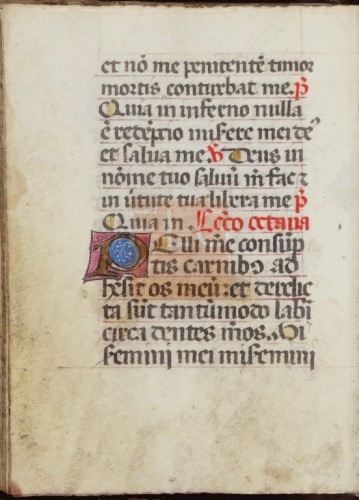 et nō me penitentē timor
mortis conturbat me. P̄
Quia in inferno nulla
ē retēp̄io miſere mei de᷒
et ſalua me ℣ Deus in
nōīne tuo ſaluū m̄ fac ⁊
in ūtute tua libera me P̄
Quia in. Lecō octaua
Pelli mee conſūp
tis carnibꝫ ad
heſit os meū: et derelic
ta ſūt tantūmodo labī
circa dentes m̄os. Mi
ſeminī mei miſeminī